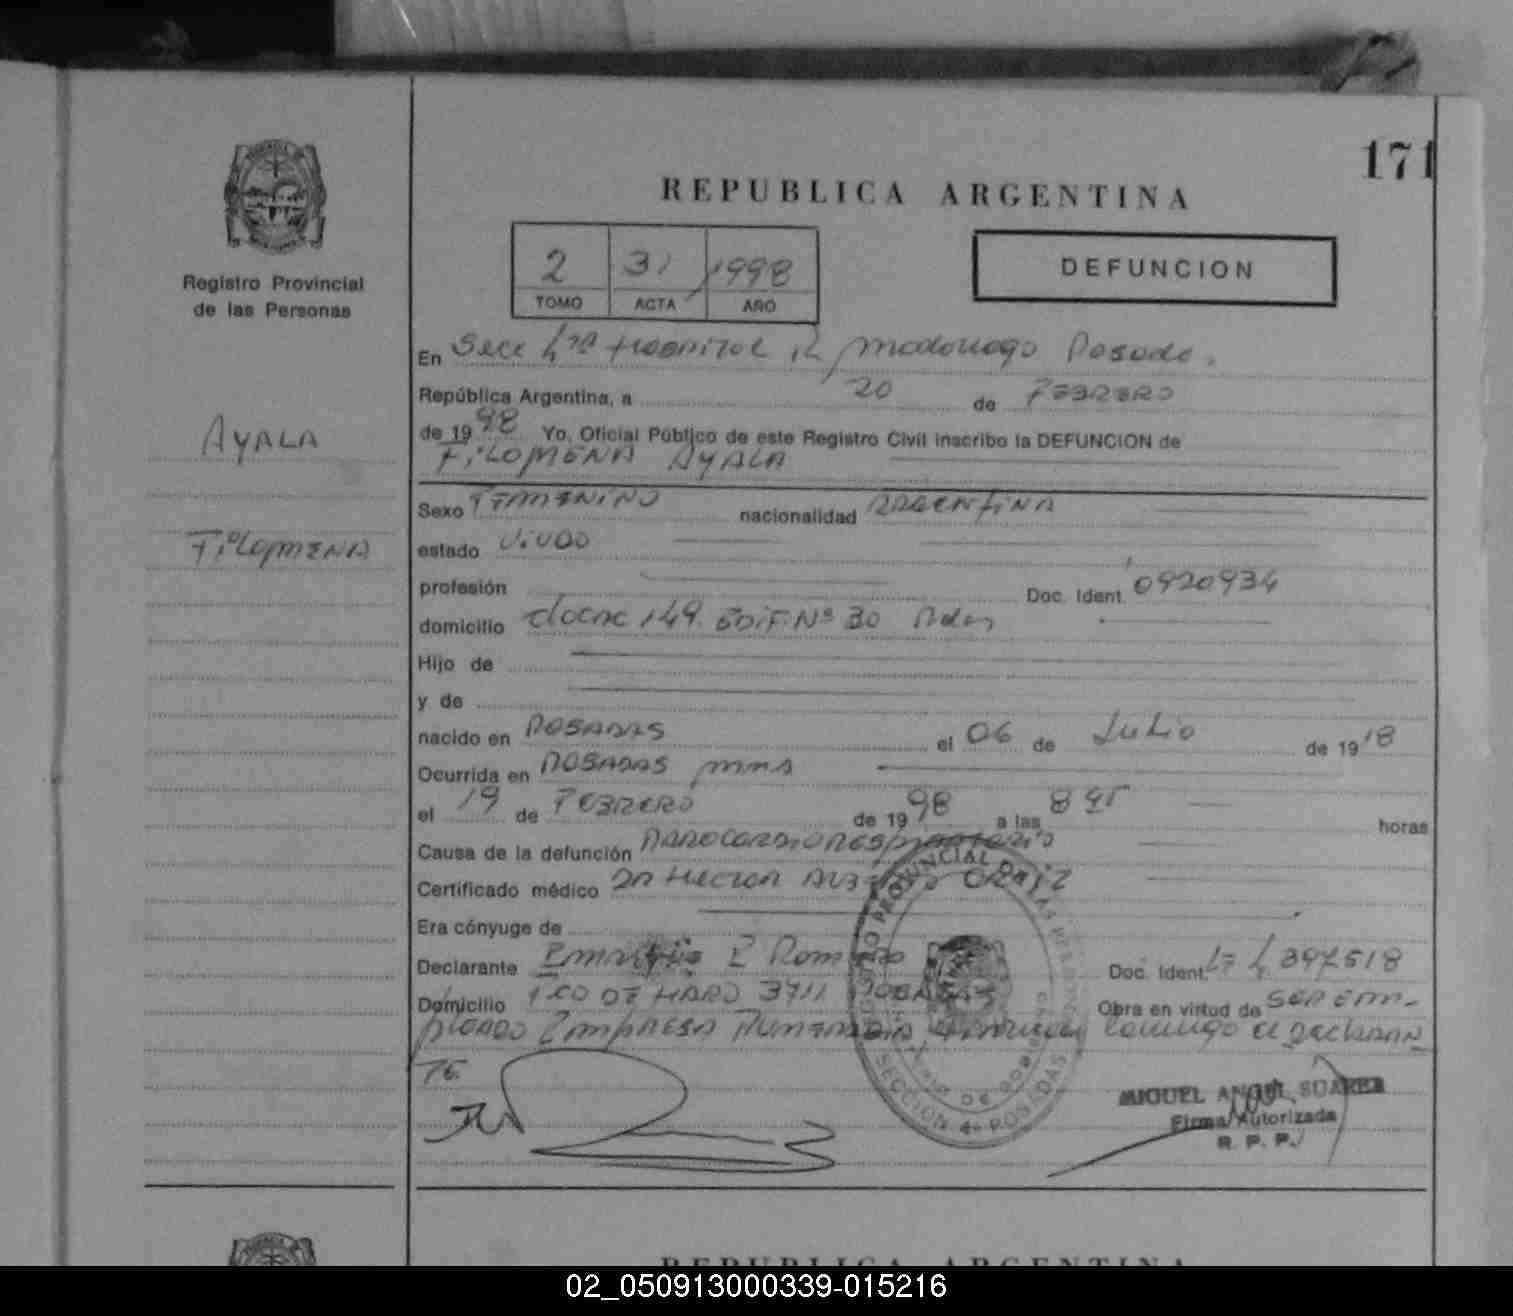 171
REPUBLICA ARGENTINA
2 31 1998
TOMO ACTA AÑO
DEFUNCION
Registro Provincial
de las Personas
AYALA
FiLOMENA
En Secc 4ta Hospital R Madariaga Posadas
República Argentina, a 20 de FEBRERO
de 1998 Yo, Oficial Público de este Registro Civil inscribo la DEFUNCION de
FiLOMENA AYALA
Sexo FEMENINO nacionalidad ARGENTINA
estado Viudo
profesión Doc. Ident. 0920934
domicilio chacac 149. EDiF. Nº 30 Pdas
Hijo de
y de
nacido en POSADAS el 06 de Julio de 1918
Ocurrida en POSADAS Mnes
el 19 de FEBRERO de 1998 a las 8 45 horas
Causa de la defunción PAROCARDIORESPIRATORIO
Certificado médico DR HECTOR ORTIZ
Era cónyuge de
Declarante E Romero Doc. Ident. 397518
Domicilio DE HARO 3711 POSADAS Obra en virtud de SER EM-
pleado EMPRESA FUNERARIA conmigo el DECLARAN
TE
REGISTRO PROVINCIAL DE LAS PERSONAS
SECCION 4a POSADAS
MIGUEL ANGEL SUAREZ
Firma Autorizada
R. P. P.
REPUBLICA ARGENTINA
02_050913000339-015216